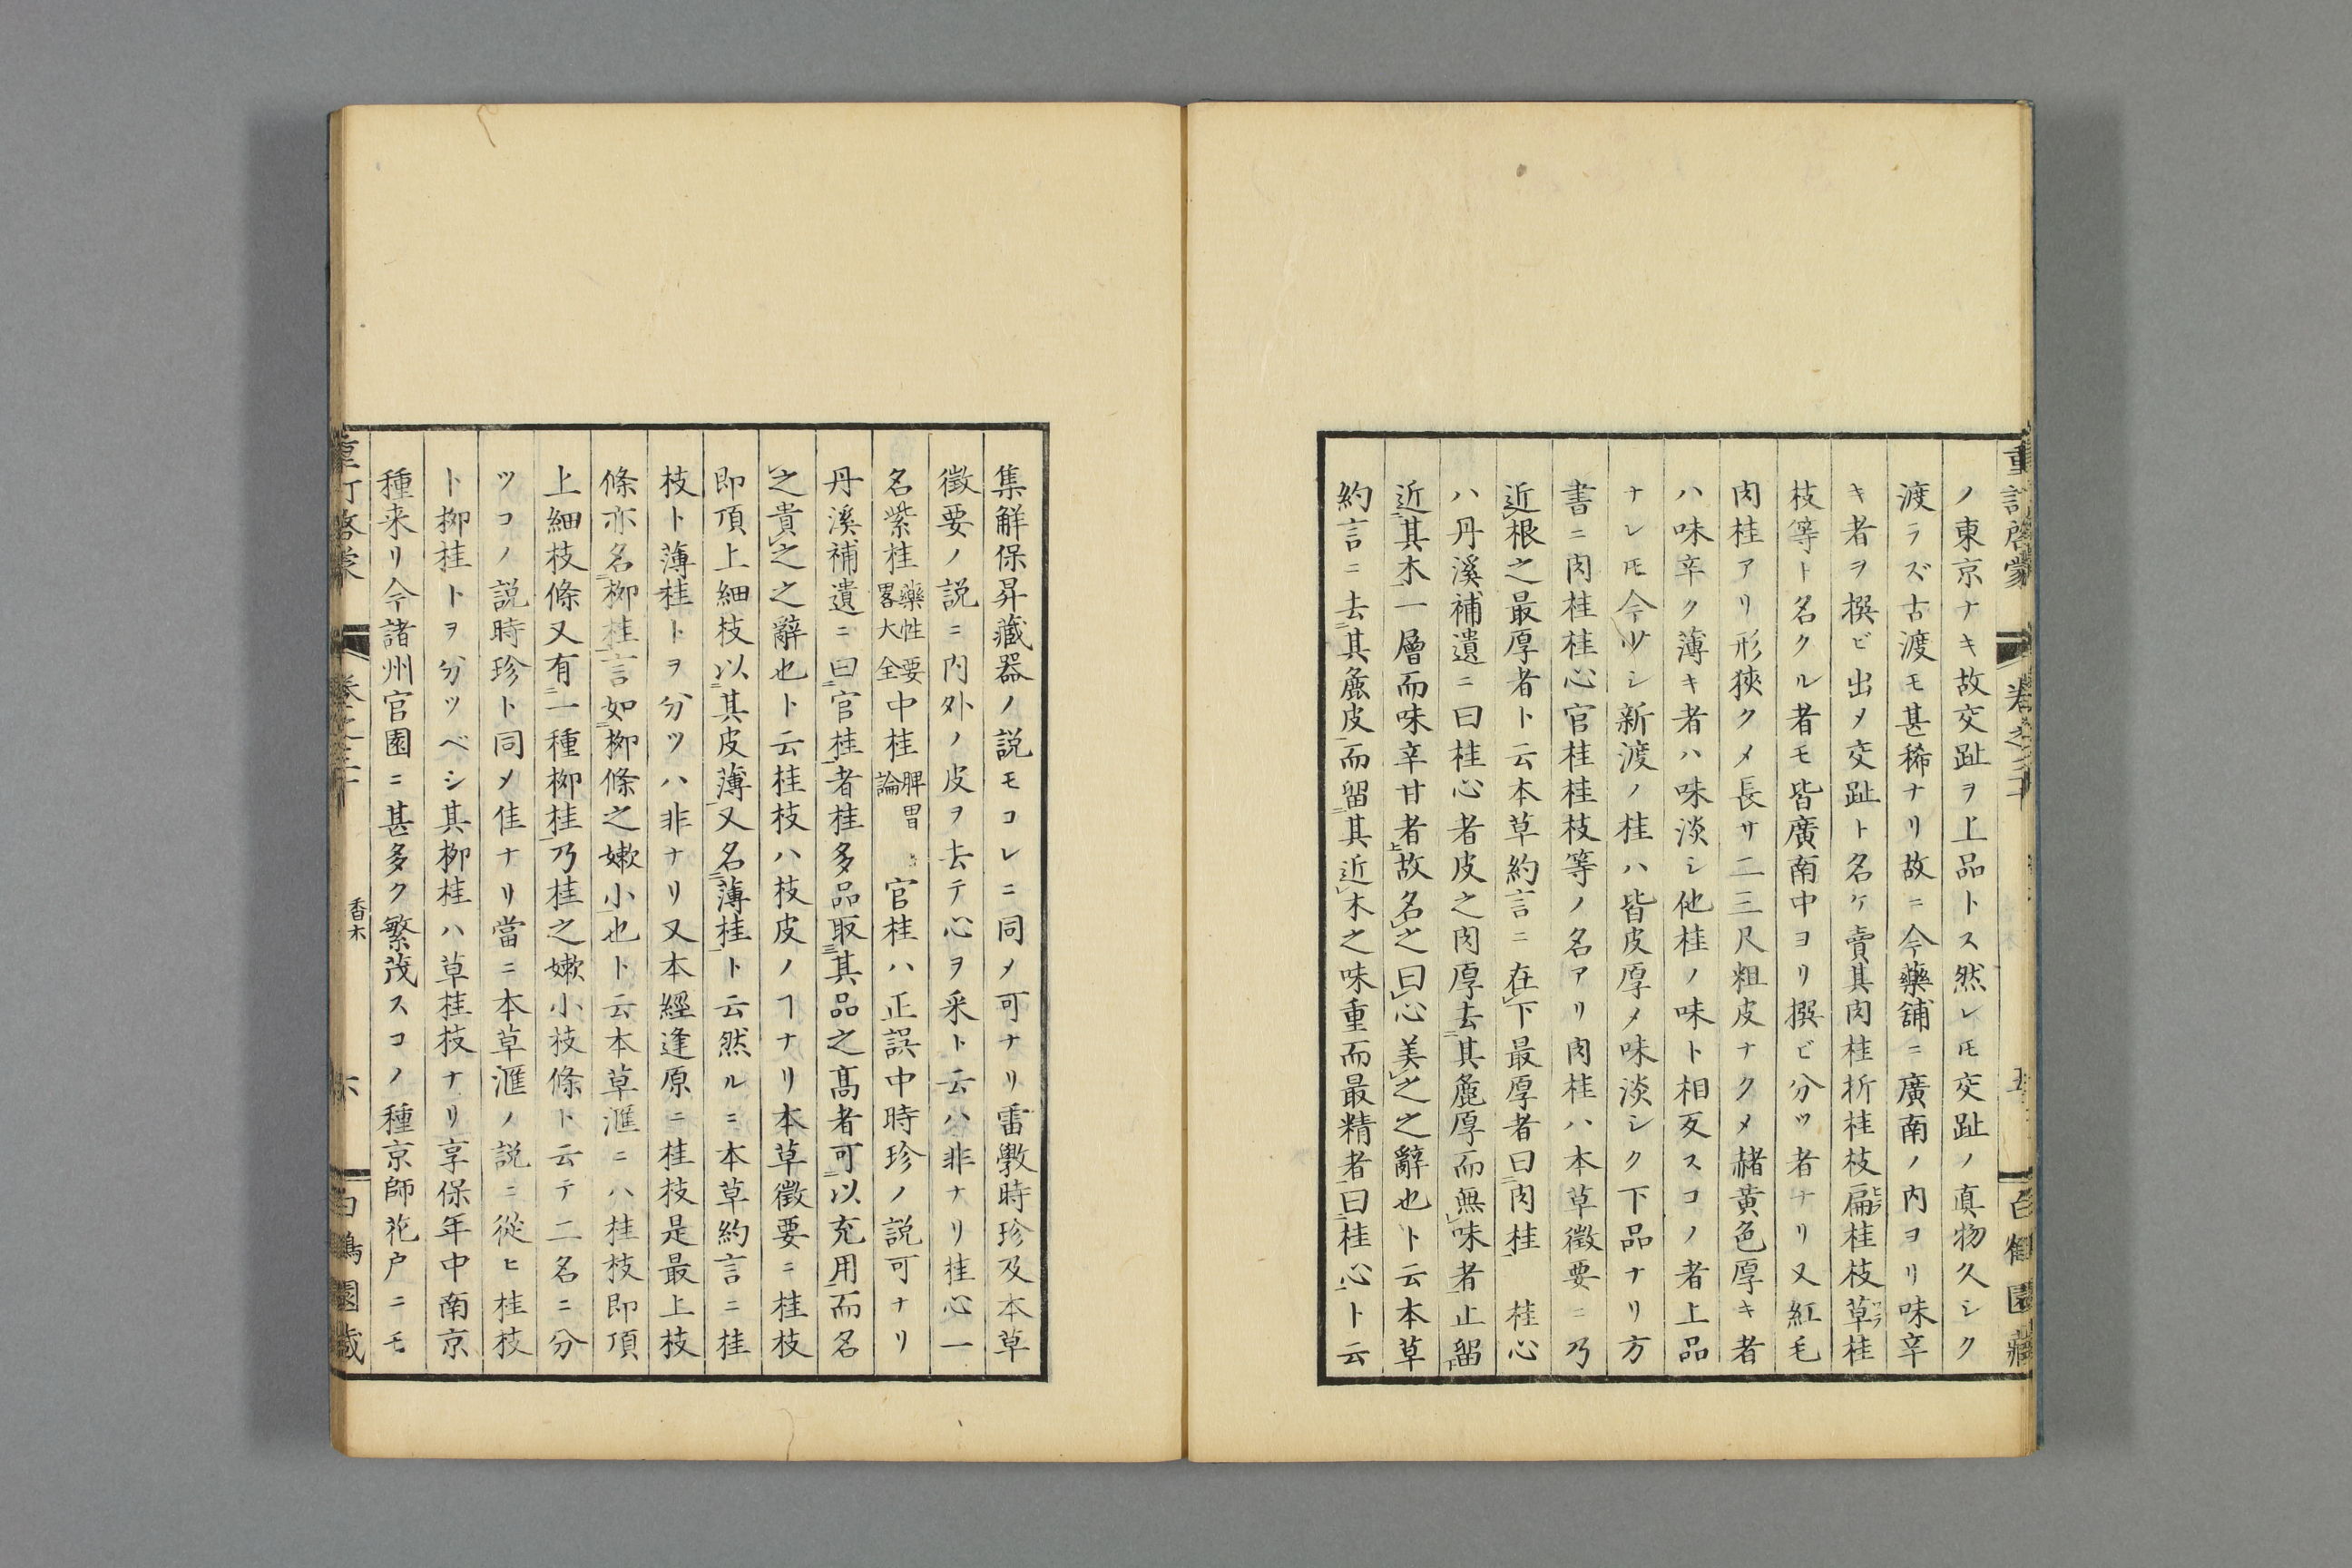 ノ東京ナキ故交趾ヲ上品トス然レ𪜈交趾ノ真物久シク
渡ラズ古渡モ甚稀ナリ故ニ今藥舗ニ廣南ノ内ヨリ味辛
キ者ヲ撰ビ出メ交趾ト名ケ賣其肉桂折桂枝扁桂枝草桂
枝等ト名クル者モ皆廣南中ヨリ撰ビ分ツ者ナリ又紅毛
肉桂アリ形狹クメ長サ二三尺粗皮ナクメ赭黄色厚キ者
ハ味辛ク薄キ者ハ味淡シ他桂ノ味ト相反スコノ者上品
ナレ𪜈今少シ新渡ノ桂ハ皆皮厚メ味淡シク下品ナリ方
書ニ肉桂桂心官桂桂枝等ノ名アリ肉桂ハ本草徵要ニ乃
近根之最厚者ト云本草約言ニ在下最厚者曰肉桂 桂心
ハ丹溪補遺ニ曰桂心者皮之肉厚去其麁厚而無味者止留
近其木一層而味辛甘者故名之曰心美之之辭也ト云本草
約言ニ去其麁皮而留其近木之味重而最精者曰桂心ト云
重訂啓蒙 卷之三十 五 白鶴園藏
集解保昇藏器ノ説モコレニ同メ可ナリ雷斅時珍及本草
徵要ノ説ニ内外ノ皮ヲ去テ心ヲ采ト云ハ非ナリ桂心一
名紫桂藥性要畧大全中桂脾胃論 官桂ハ正誤中時珍ノ説可ナリ
丹溪補遺ニ曰官桂者桂多品取其品之髙者可以充用而名
之貴之之辭也ト云桂枝ハ枝皮ノヿナリ本草徵要ニ桂枝
即頂上細枝以其皮薄又名薄桂ト云然ルニ本草約言ニ桂
枝ト薄桂トヲ分ツハ非ナリ又本經逢原ニ桂枝是最上枝
條亦名柳桂言如柳條之嫰小也ト云本草滙ニハ桂枝即頂
上細枝條又有一種柳桂乃桂之嫰小枝條ト云テ二名ニ分
ツコノ説時珍ト同メ佳ナリ當ニ本草滙ノ説ニ從ヒ桂枝
ト柳桂トヲ分ツベシ其柳桂ハ草桂枝ナリ享保年中南京
種来リ今諸州官園ニ甚多ク繁茂スコノ種京師花户ニモ
香木 六